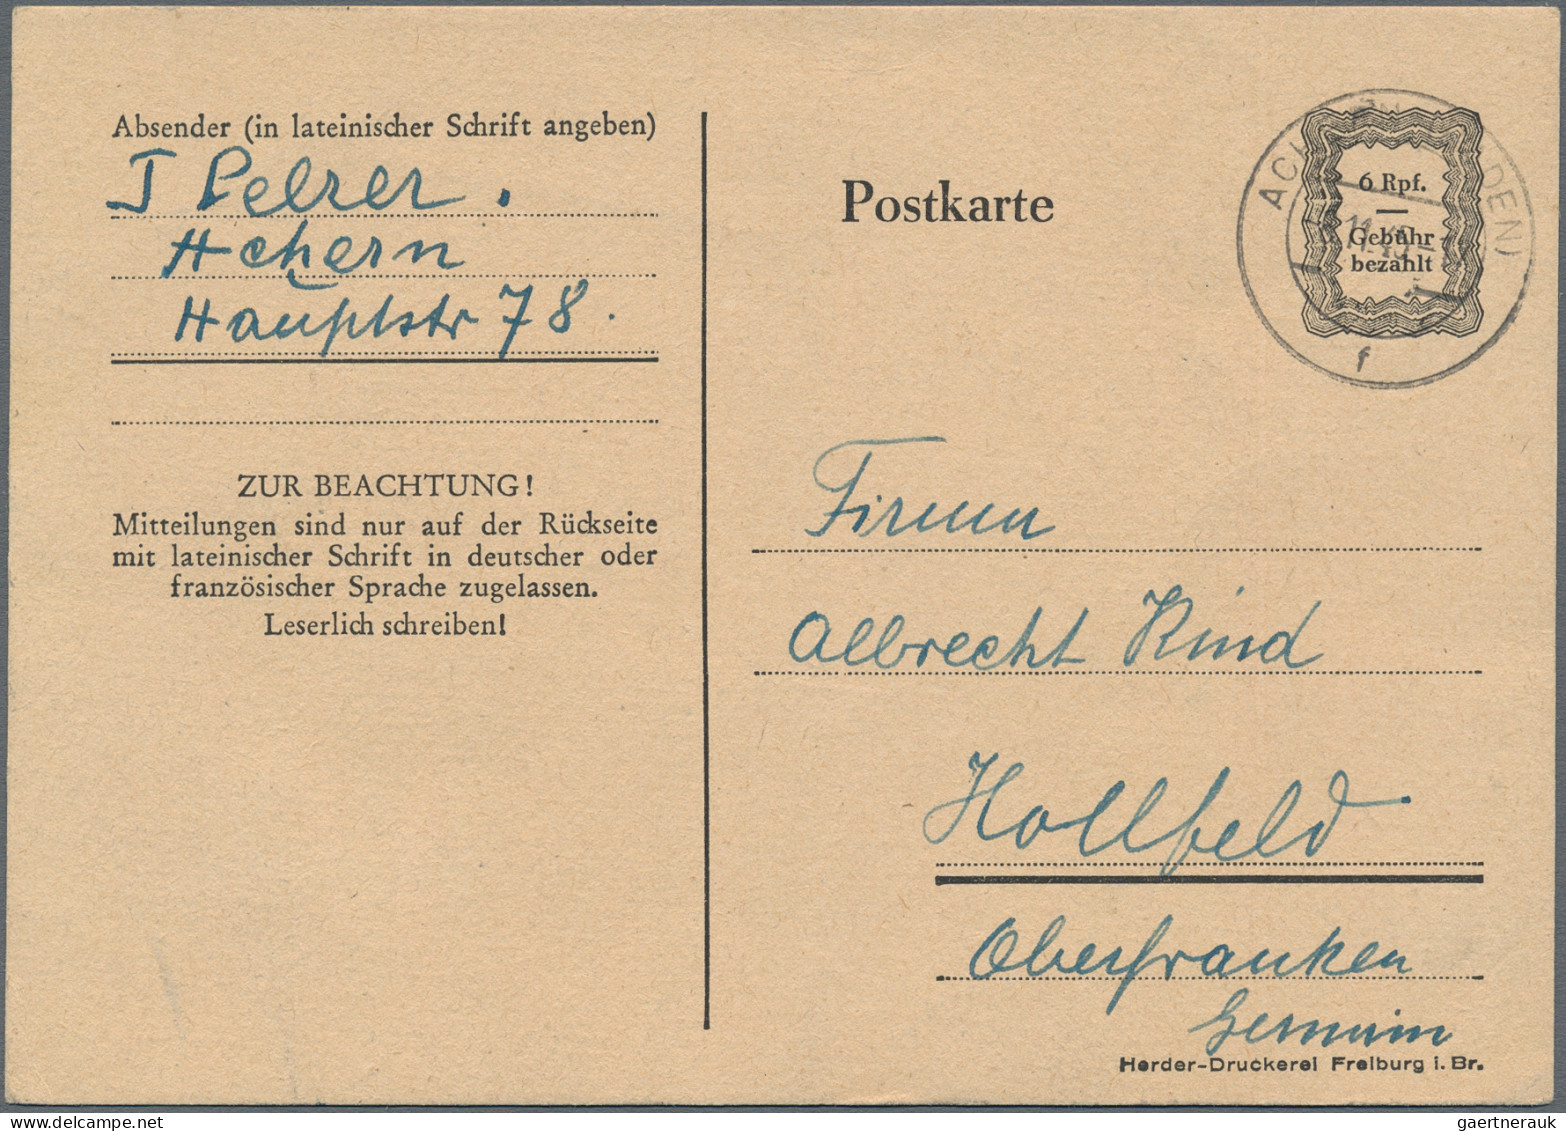 Absender (in lateinischer Schrift angeben)
J Pelzer.
Achern
Hauptstr 78.
ZUR BEACHTUNG!
Mitteilungen sind nur auf der Rückseite
mit lateinischer Schrift in deutscher oder
französischer Sprache zugelassen.
Leserlich schreiben!
Postkarte
6 Rpf.
Gebühr
bezahlt
f
Firma
Albrecht Kind
Hollfeld
Oberfranken
Herder-Druckerei Freiburg i. Br.
gaertnerauk